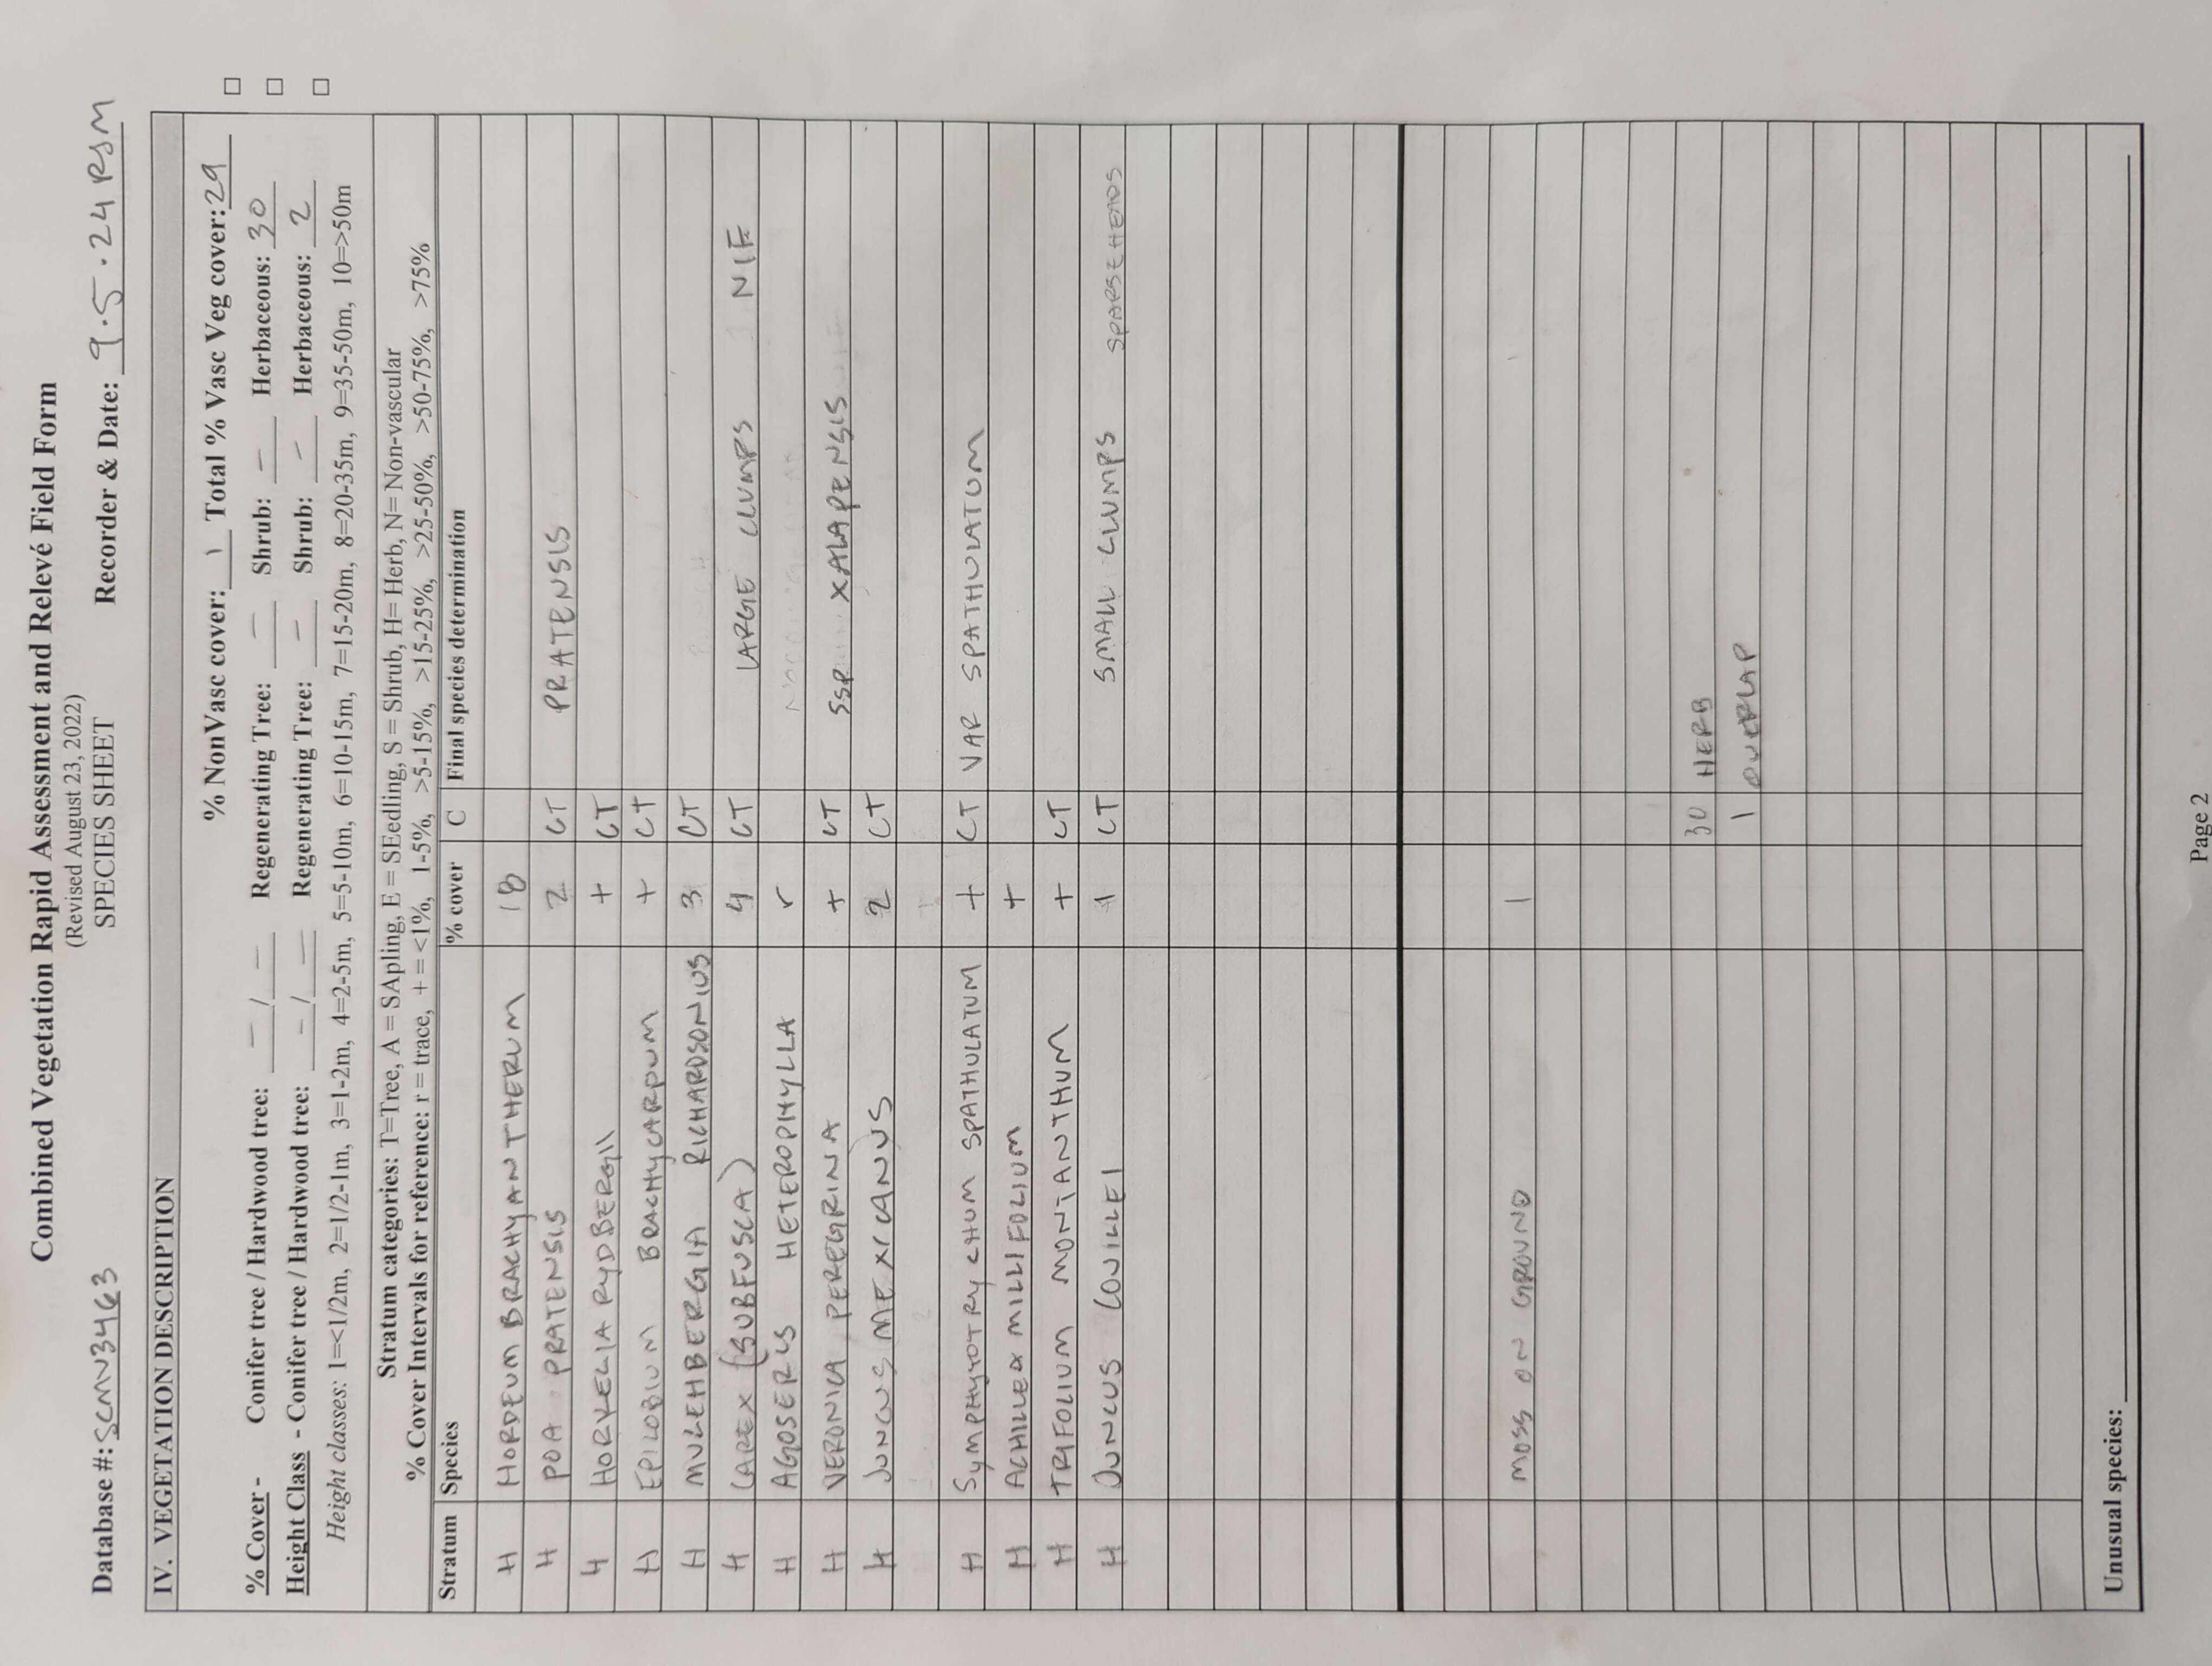 Combined Vegetation Rapid Assessment and Relevé Field Form
(Revised August 23, 2022)
SPECIES SHEET
Database #: SCMV3463 Recorder & Date: 9.5.24 RSM
IV. VEGETATION DESCRIPTION
% NonVasc cover: 1 Total % Vasc Veg cover: 29
% Cover - Conifer tree / Hardwood tree: – / – Regenerating Tree: – Shrub: – Herbaceous: 30
Height Class - Conifer tree / Hardwood tree: – / – Regenerating Tree: – Shrub: – Herbaceous: 2
Height classes: 1=<1/2m, 2=1/2-1m, 3=1-2m, 4=2-5m, 5=5-10m, 6=10-15m, 7=15-20m, 8=20-35m, 9=35-50m, 10=>50m
Stratum categories: T=Tree, A = SApling, E = SEedling, S = Shrub, H= Herb, N= Non-vascular
% Cover Intervals for reference: r = trace, + = <1%, 1-5%, >5-15%, >15-25%, >25-50%, >50-75%, >75%
Stratum Species % cover C Final species determination
H HORDEUM BRACHYANTHERUM 18
H POA PRATENSIS 2 CT PRATENSIS
H HORKELIA RYDBERGII + CT
H EPILOBIUM BRACHYCARPUM + CT
H MULEHBERGIA RICHARDSONIUS 3 CT
H CAREX (SUBFUSCA) 4 CT LARGE CLUMPS NIF
H AGOSERIS HETEROPHYLLA r
H VERONICA PEREGRINA + CT SSP XALAPENSIS
H JUNCUS MEXICANUS 2 CT
H SYMPHYOTRYCHUM SPATHULATUM + CT VAR SPATHULATUM
H ACHILLEA MILLIFOLIUM +
H TRIFOLIUM MONTANTHUM + CT
H JUNCUS COVILLEI 1 CT SMALL CLUMPS SPARSE HEADS
MOSS ON GROUND 1
30 HERB
1 OVERLAP
Unusual species:
Page 2